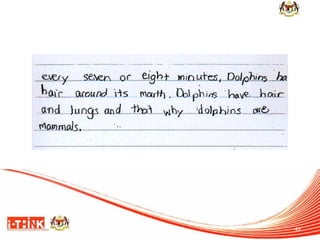 every seven or eight minutes. Dolphins ha
hair around its mouth. Dolphins have hair
and lungs and that why dolphins are
mammals.
i-THINK